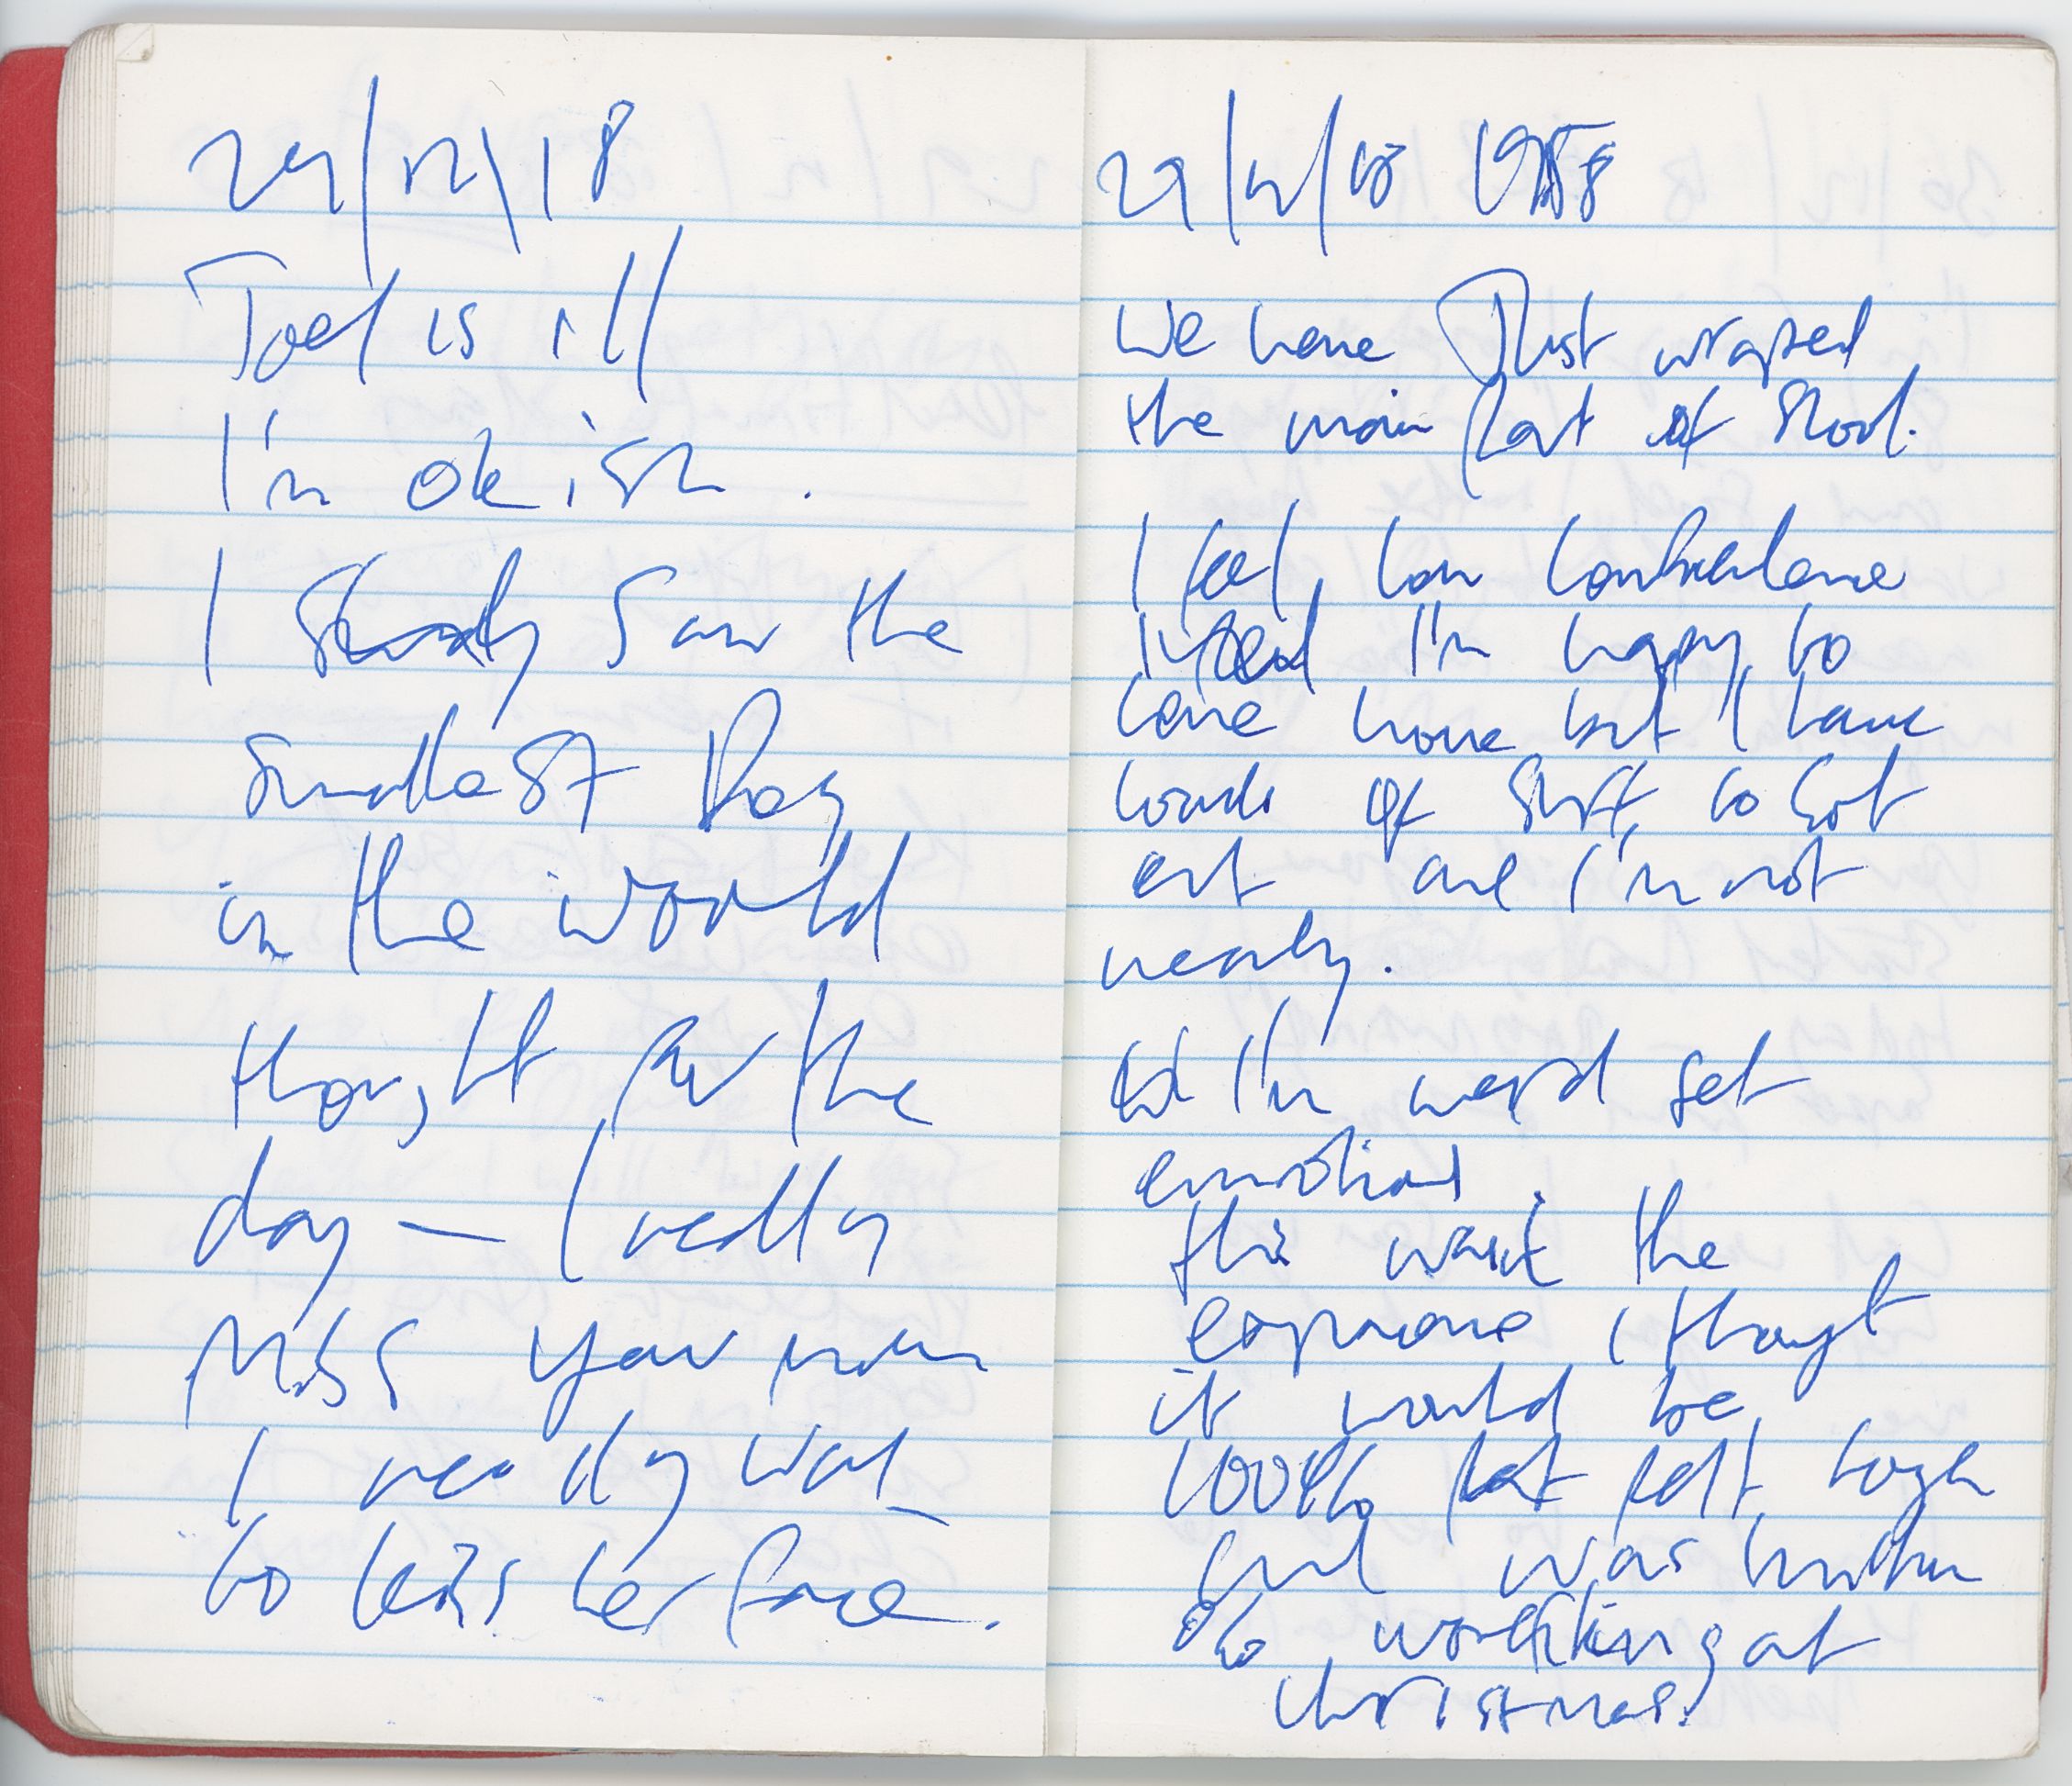 29/12/18
Joel is ill
I'm ok ish.
I saw the
smallest Dog
in the world
thought for the
day — I really
Miss your mum
I really want
to kiss her face.
29/12/18 1958
we have Just wraped
the main Part of Shoot.
I feel low
I'm happy to
come home but I have
loads of stuff to sort
out and I'm not
ready.
I'm weird get
emotional.
this wasn't the
experience I thought
it would be
100% felt tough
and was
working at
christmas.